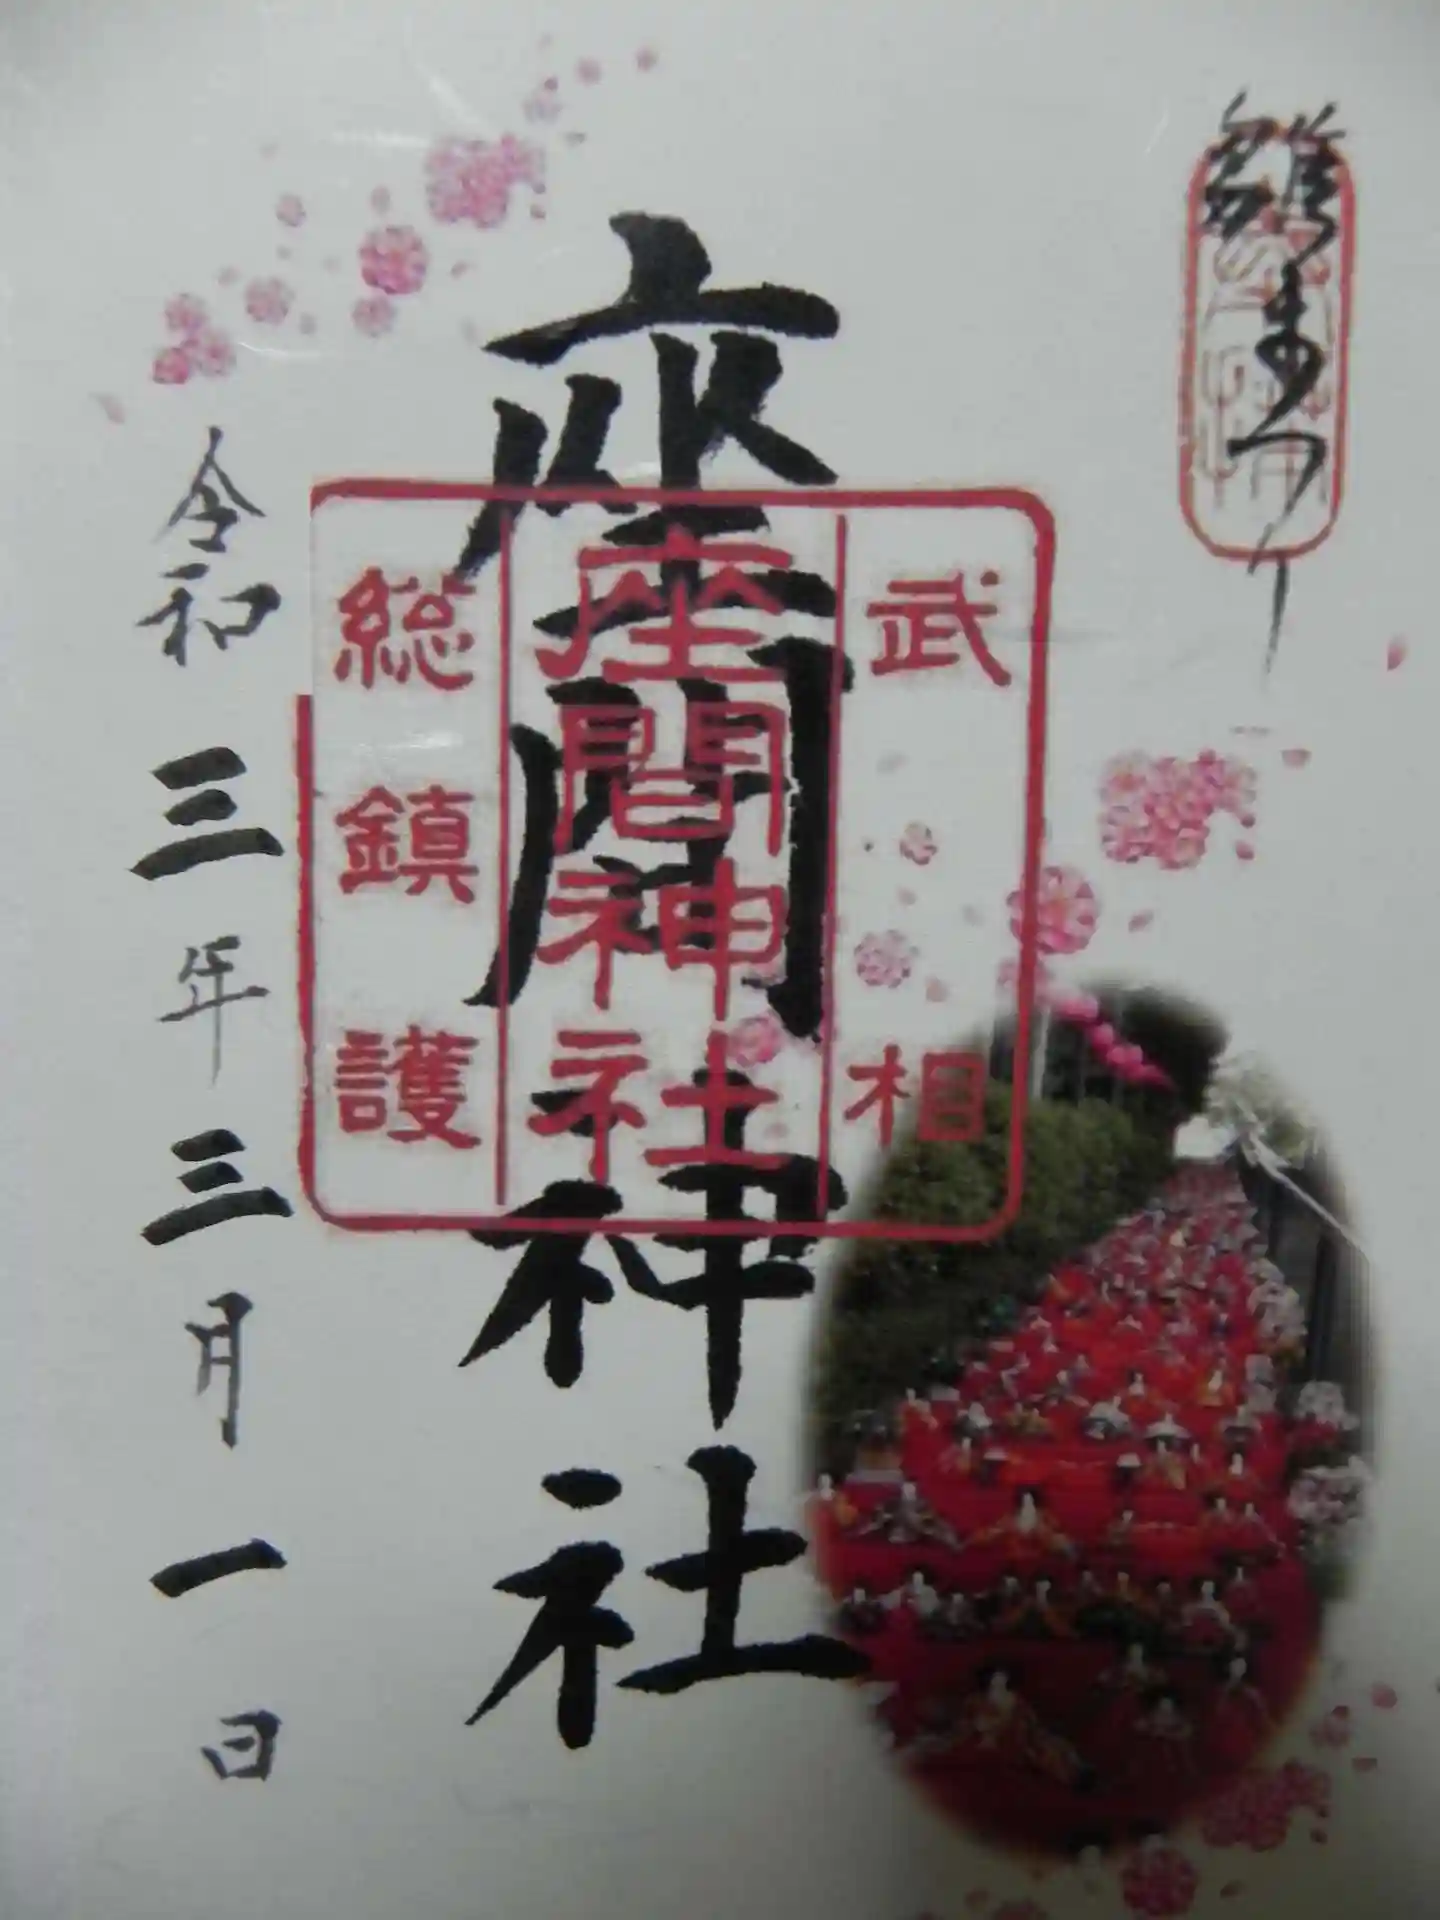 雛まつり
武相
座間神社
総鎮護
座間神社
令和三年三月一日